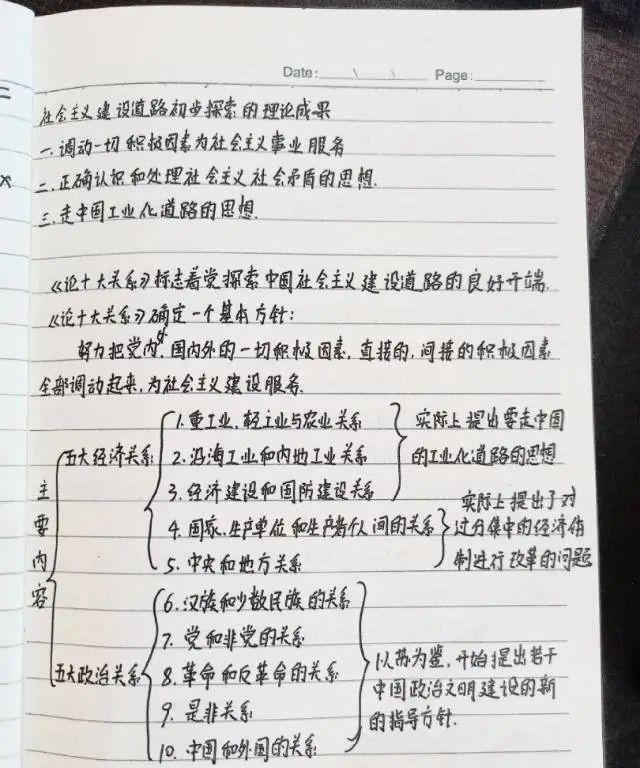 Date: \ \ Page:
社会主义建设道路初步探索的理论成果
一.调动一切积极因素为社会主义事业服务
二.正确认识和处理社会主义社会矛盾的思想.
三.走中国工业化道路的思想.
《论十大关系》标志着党探索中国社会主义建设道路的良好开端.
《论十大关系》确定一个基本方针:
努力把党内外、国内外的一切积极因素,直接的,间接的积极因素
全部调动起来,为社会主义建设服务.
主要内容
五大经济关系
1.重工业,轻工业与农业关系
2.沿海工业和内地工业关系
3.经济建设和国防建设关系
实际上提出要走中国
的工业化道路的思想
4.国家、生产单位和生产者个人间的关系
5.中央和地方关系
实际上提出了对
过分集中的经济体
制进行改革的问题
五大政治关系
6.汉族和少数民族的关系
7.党和非党的关系
8.革命和反革命的关系
9.是非关系
10.中国和外国的关系
以苏为鉴,开始提出若干
中国政治文明建设的新
的指导方针.